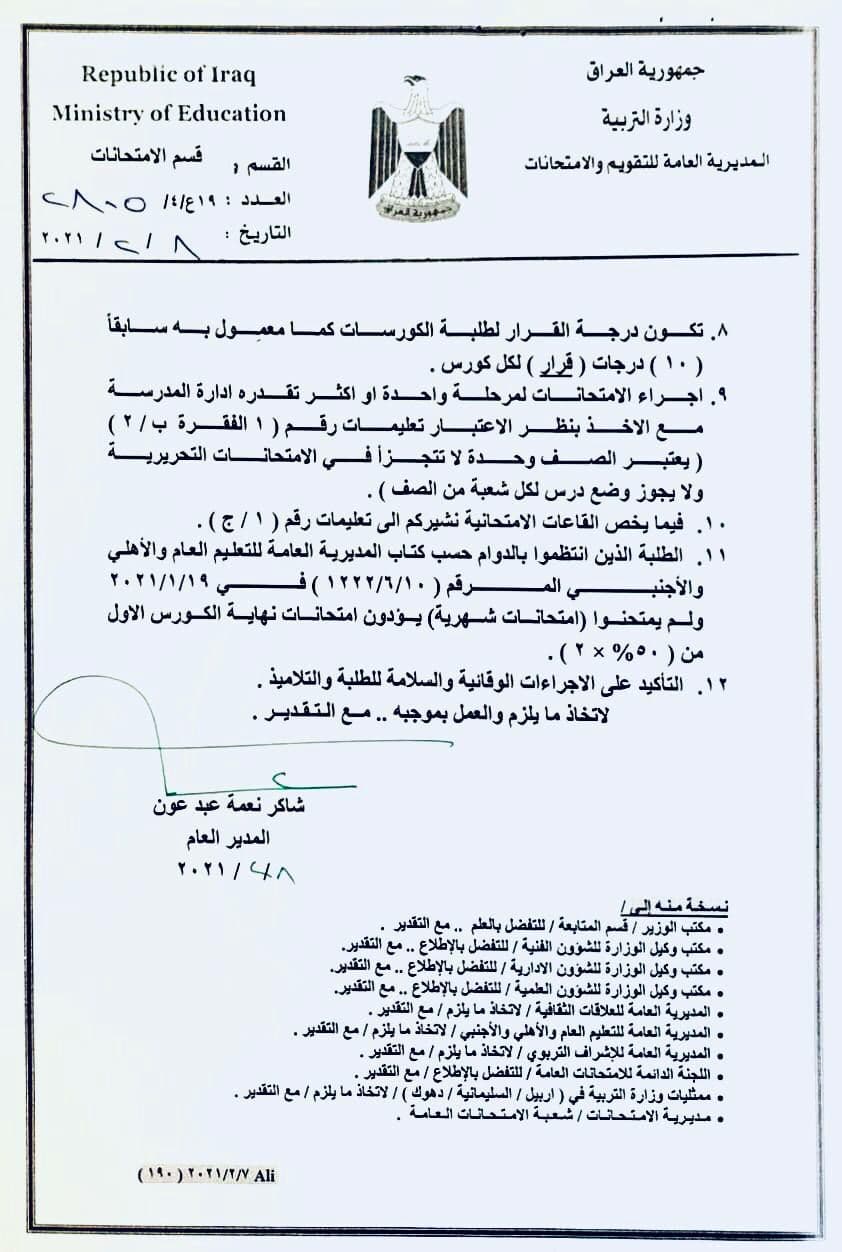 Republic of Iraq
Ministry of Education
جمهورية العراق
وزارة التربية
المديرية العامة للتقويم والامتحانات
القسم : قسم الامتحانات
العدد : ١٩ع/٤/ ٢٨٠٥
التاريخ : ٨ / ٢ / ٢٠٢١
جمهورية العراق
٨. تكون درجة القرار لطلبة الكورسات كما معمول به سابقاً
( ١٠ ) درجات ( قرار ) لكل كورس .
٩. اجراء الامتحانات لمرحلة واحدة او اكثر تقدره ادارة المدرسة
مع الاخذ بنظر الاعتبار تعليمات رقم ( ١ الفقرة ب / ٢ )
( يعتبر الصف وحدة لا تتجزأ في الامتحانات التحريرية
ولا يجوز وضع درس لكل شعبة من الصف ) .
١٠. فيما يخص القاعات الامتحانية نشيركم الى تعليمات رقم ( ١ / ج ) .
١١. الطلبة الذين انتظموا بالدوام حسب كتاب المديرية العامة للتعليم العام والأهلي
والأجنبي المرقم ( ١٢٢٢/٦/١٠ ) في ٢٠٢١/١/١٩
ولم يمتحنوا (امتحانات شهرية) يؤدون امتحانات نهاية الكورس الاول
من ( ٥٠% × ٢ ) .
١٢. التأكيد على الاجراءات الوقائية والسلامة للطلبة والتلاميذ .
لاتخاذ ما يلزم والعمل بموجبه .. مع التقدير .
شاكر نعمة عبد عون
المدير العام
٢٠٢١ /
نسخة منه إلى /
• مكتب الوزير / قسم المتابعة / للتفضل بالعلم .. مع التقدير .
• مكتب وكيل الوزارة للشؤون الفنية / للتفضل بالإطلاع .. مع التقدير.
• مكتب وكيل الوزارة للشؤون الادارية / للتفضل بالإطلاع .. مع التقدير.
• مكتب وكيل الوزارة للشؤون العلمية / للتفضل بالإطلاع .. مع التقدير.
• المديرية العامة للعلاقات الثقافية / لاتخاذ ما يلزم / مع التقدير .
• المديرية العامة للتعليم العام والأهلي والأجنبي / لاتخاذ ما يلزم / مع التقدير .
• المديرية العامة للإشراف التربوي / لاتخاذ ما يلزم / مع التقدير .
• اللجنة الدائمة للامتحانات العامة / للتفضل بالإطلاع / مع التقدير .
• ممثليات وزارة التربية في ( اربيل / السليمانية / دهوك ) / لاتخاذ ما يلزم / مع التقدير .
• مديرية الامتحانات / شعبة الامتحانات العامة .
( ١٩٠ ) ٢٠٢١/٢/٧ Ali